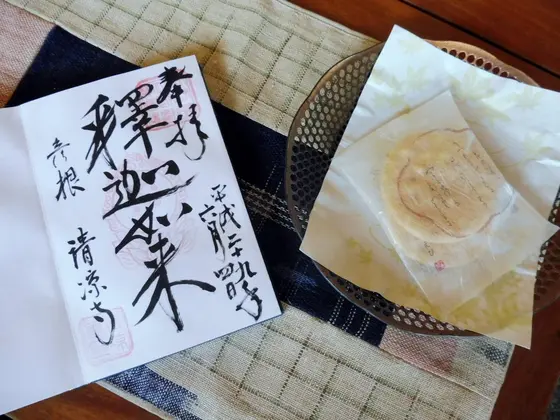 奉拝
平成二十九年
六月
釋迦如来
彦根 清凉寺